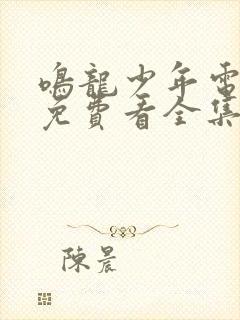 鳴龍少年電
免費看全集
陳晨